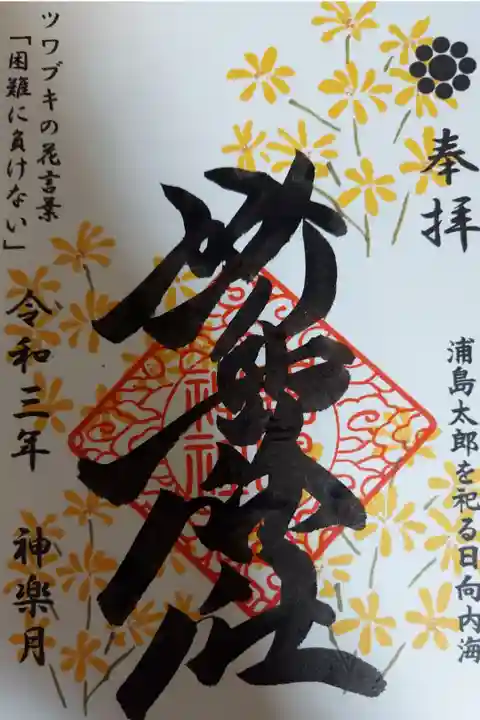 奉拝
浦島太郎を祀る日向内海
神社
ツワブキの花言葉
「困難に負けない」
令和三年 神楽月